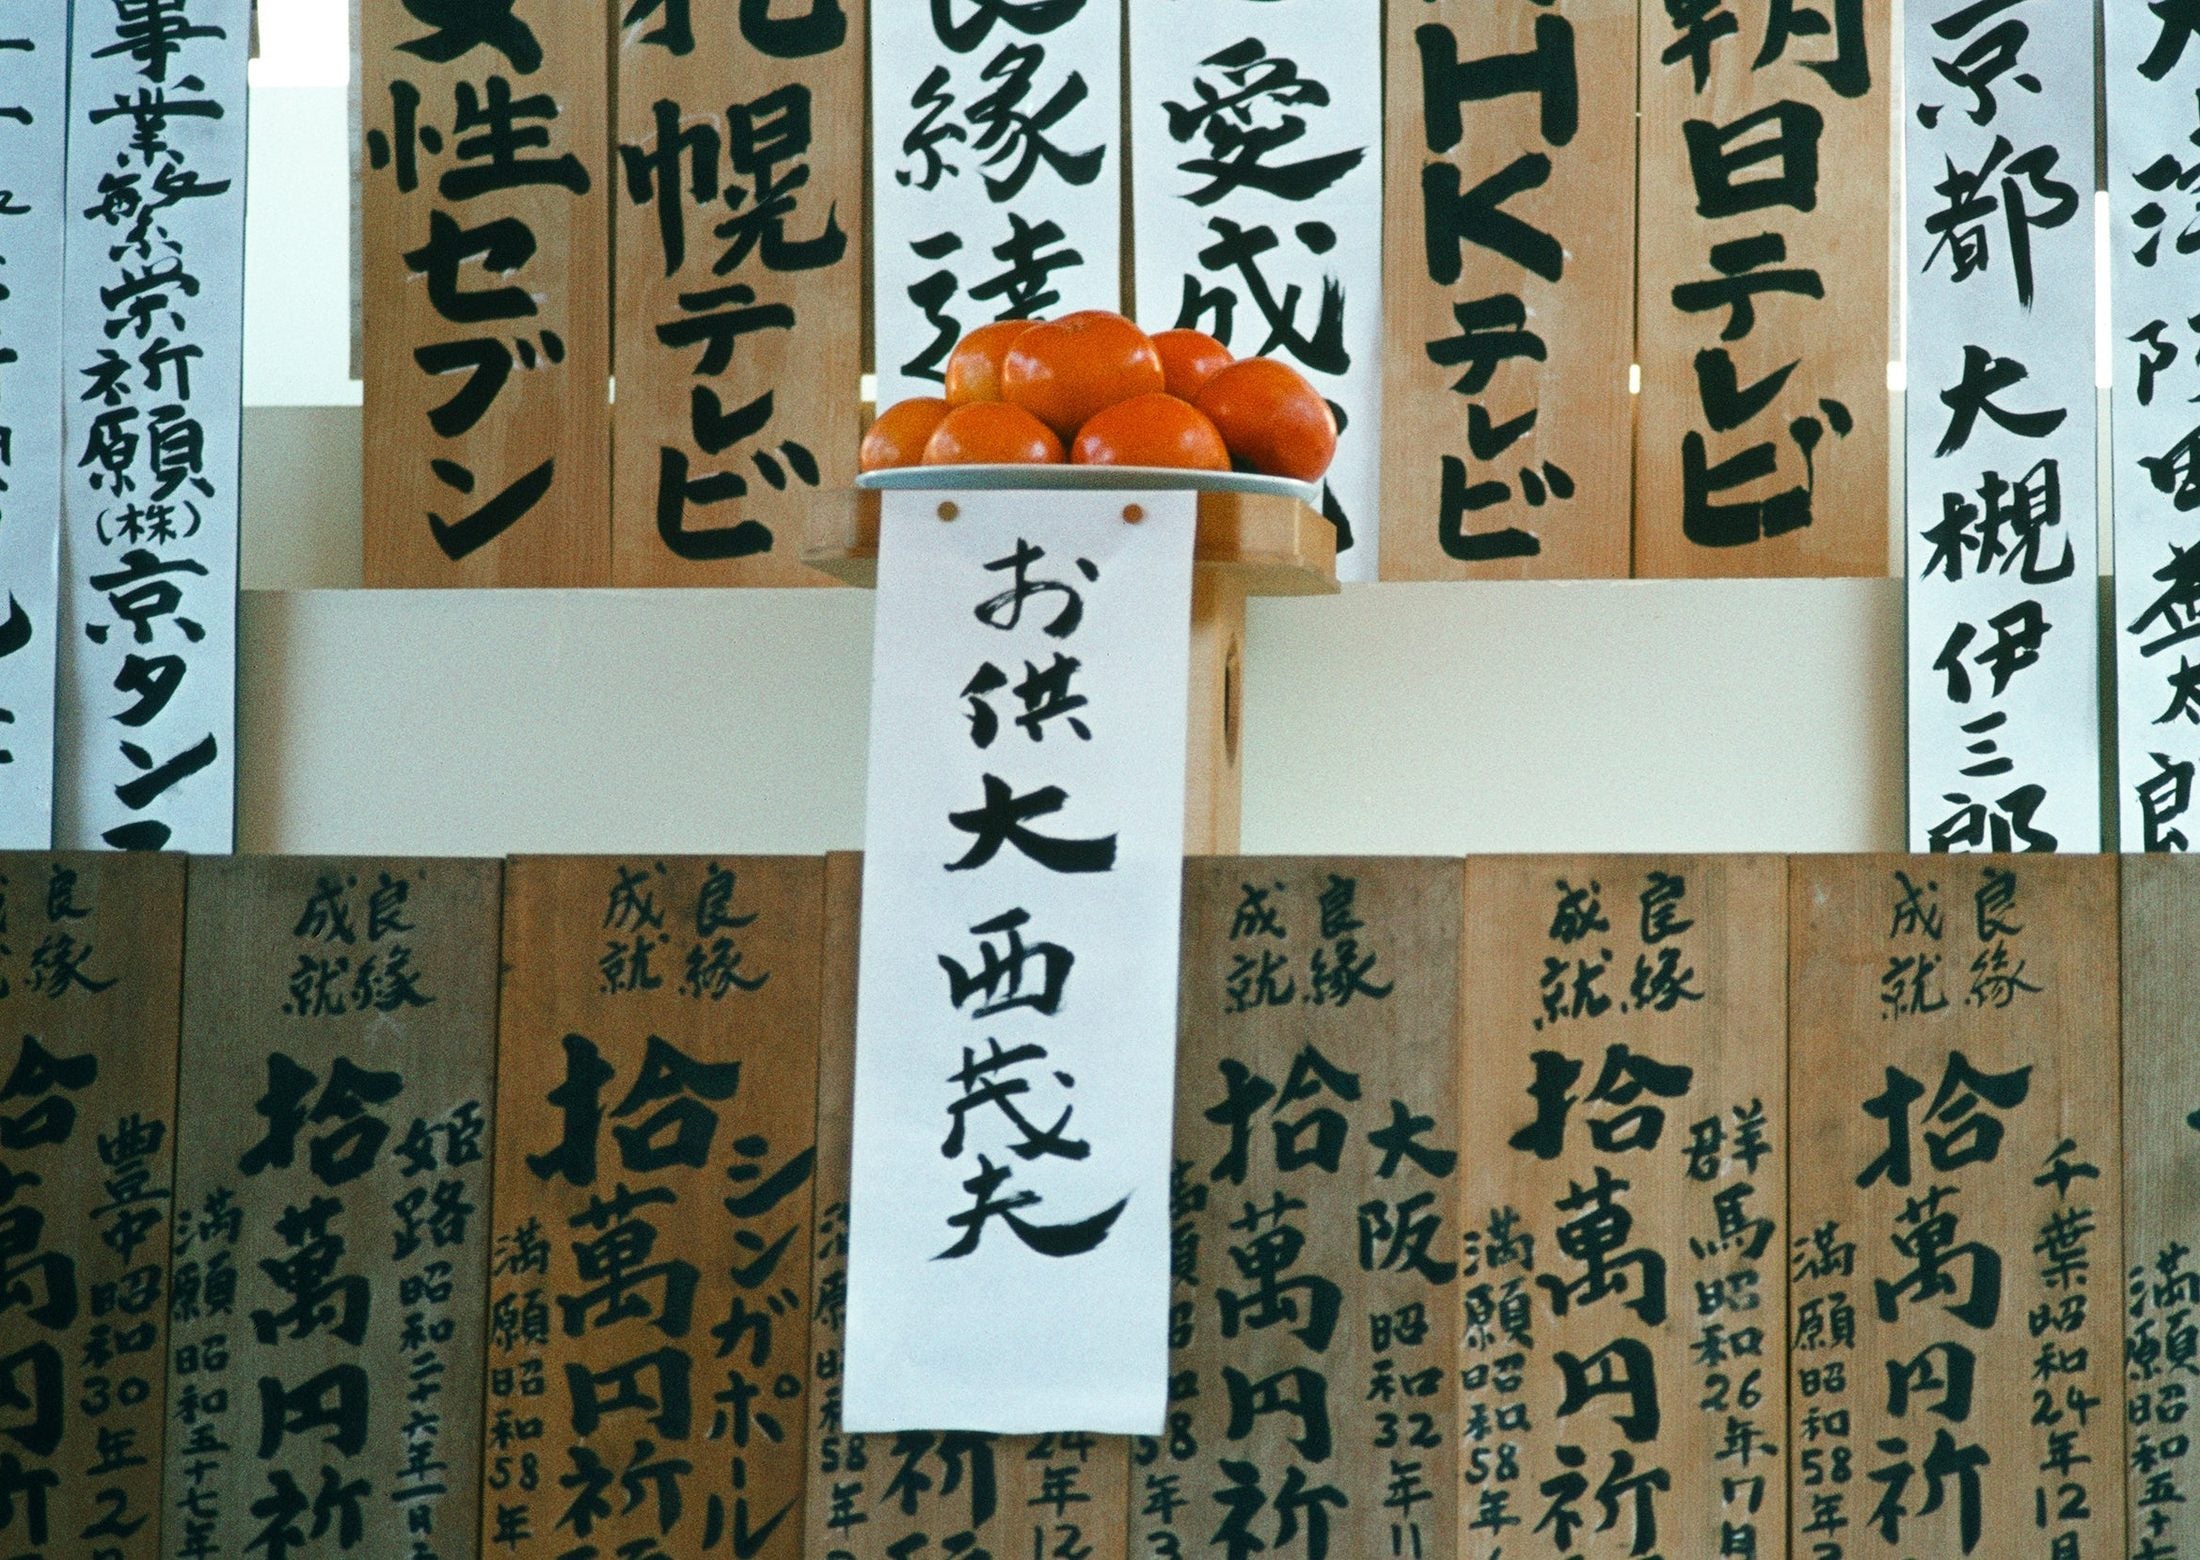 事業繁栄祈願(株)京タン
女性セブン
札幌テレビ
良縁達
愛成
HKテレビ
朝日テレビ
京都 大槻伊三郎
大津 阪田益太郎
お供 大西茂夫
良縁
拾萬円祈
豊中 昭和30年2
良縁成就
拾萬円祈
姫路 昭和二十六年一日
満願 昭和五十七年
良縁成就
拾萬円祈
シンガポール
満願 昭和58年
祈
24年12
58年
良縁成就
拾萬円祈
大阪 昭和32年11
満願 昭和58年3
良縁成就
拾萬円祈
群馬 昭和26年7月
満願 昭和58年
良縁成就
拾萬円祈
千葉 昭和24年12月
満願 昭和58年
満願 昭和五十